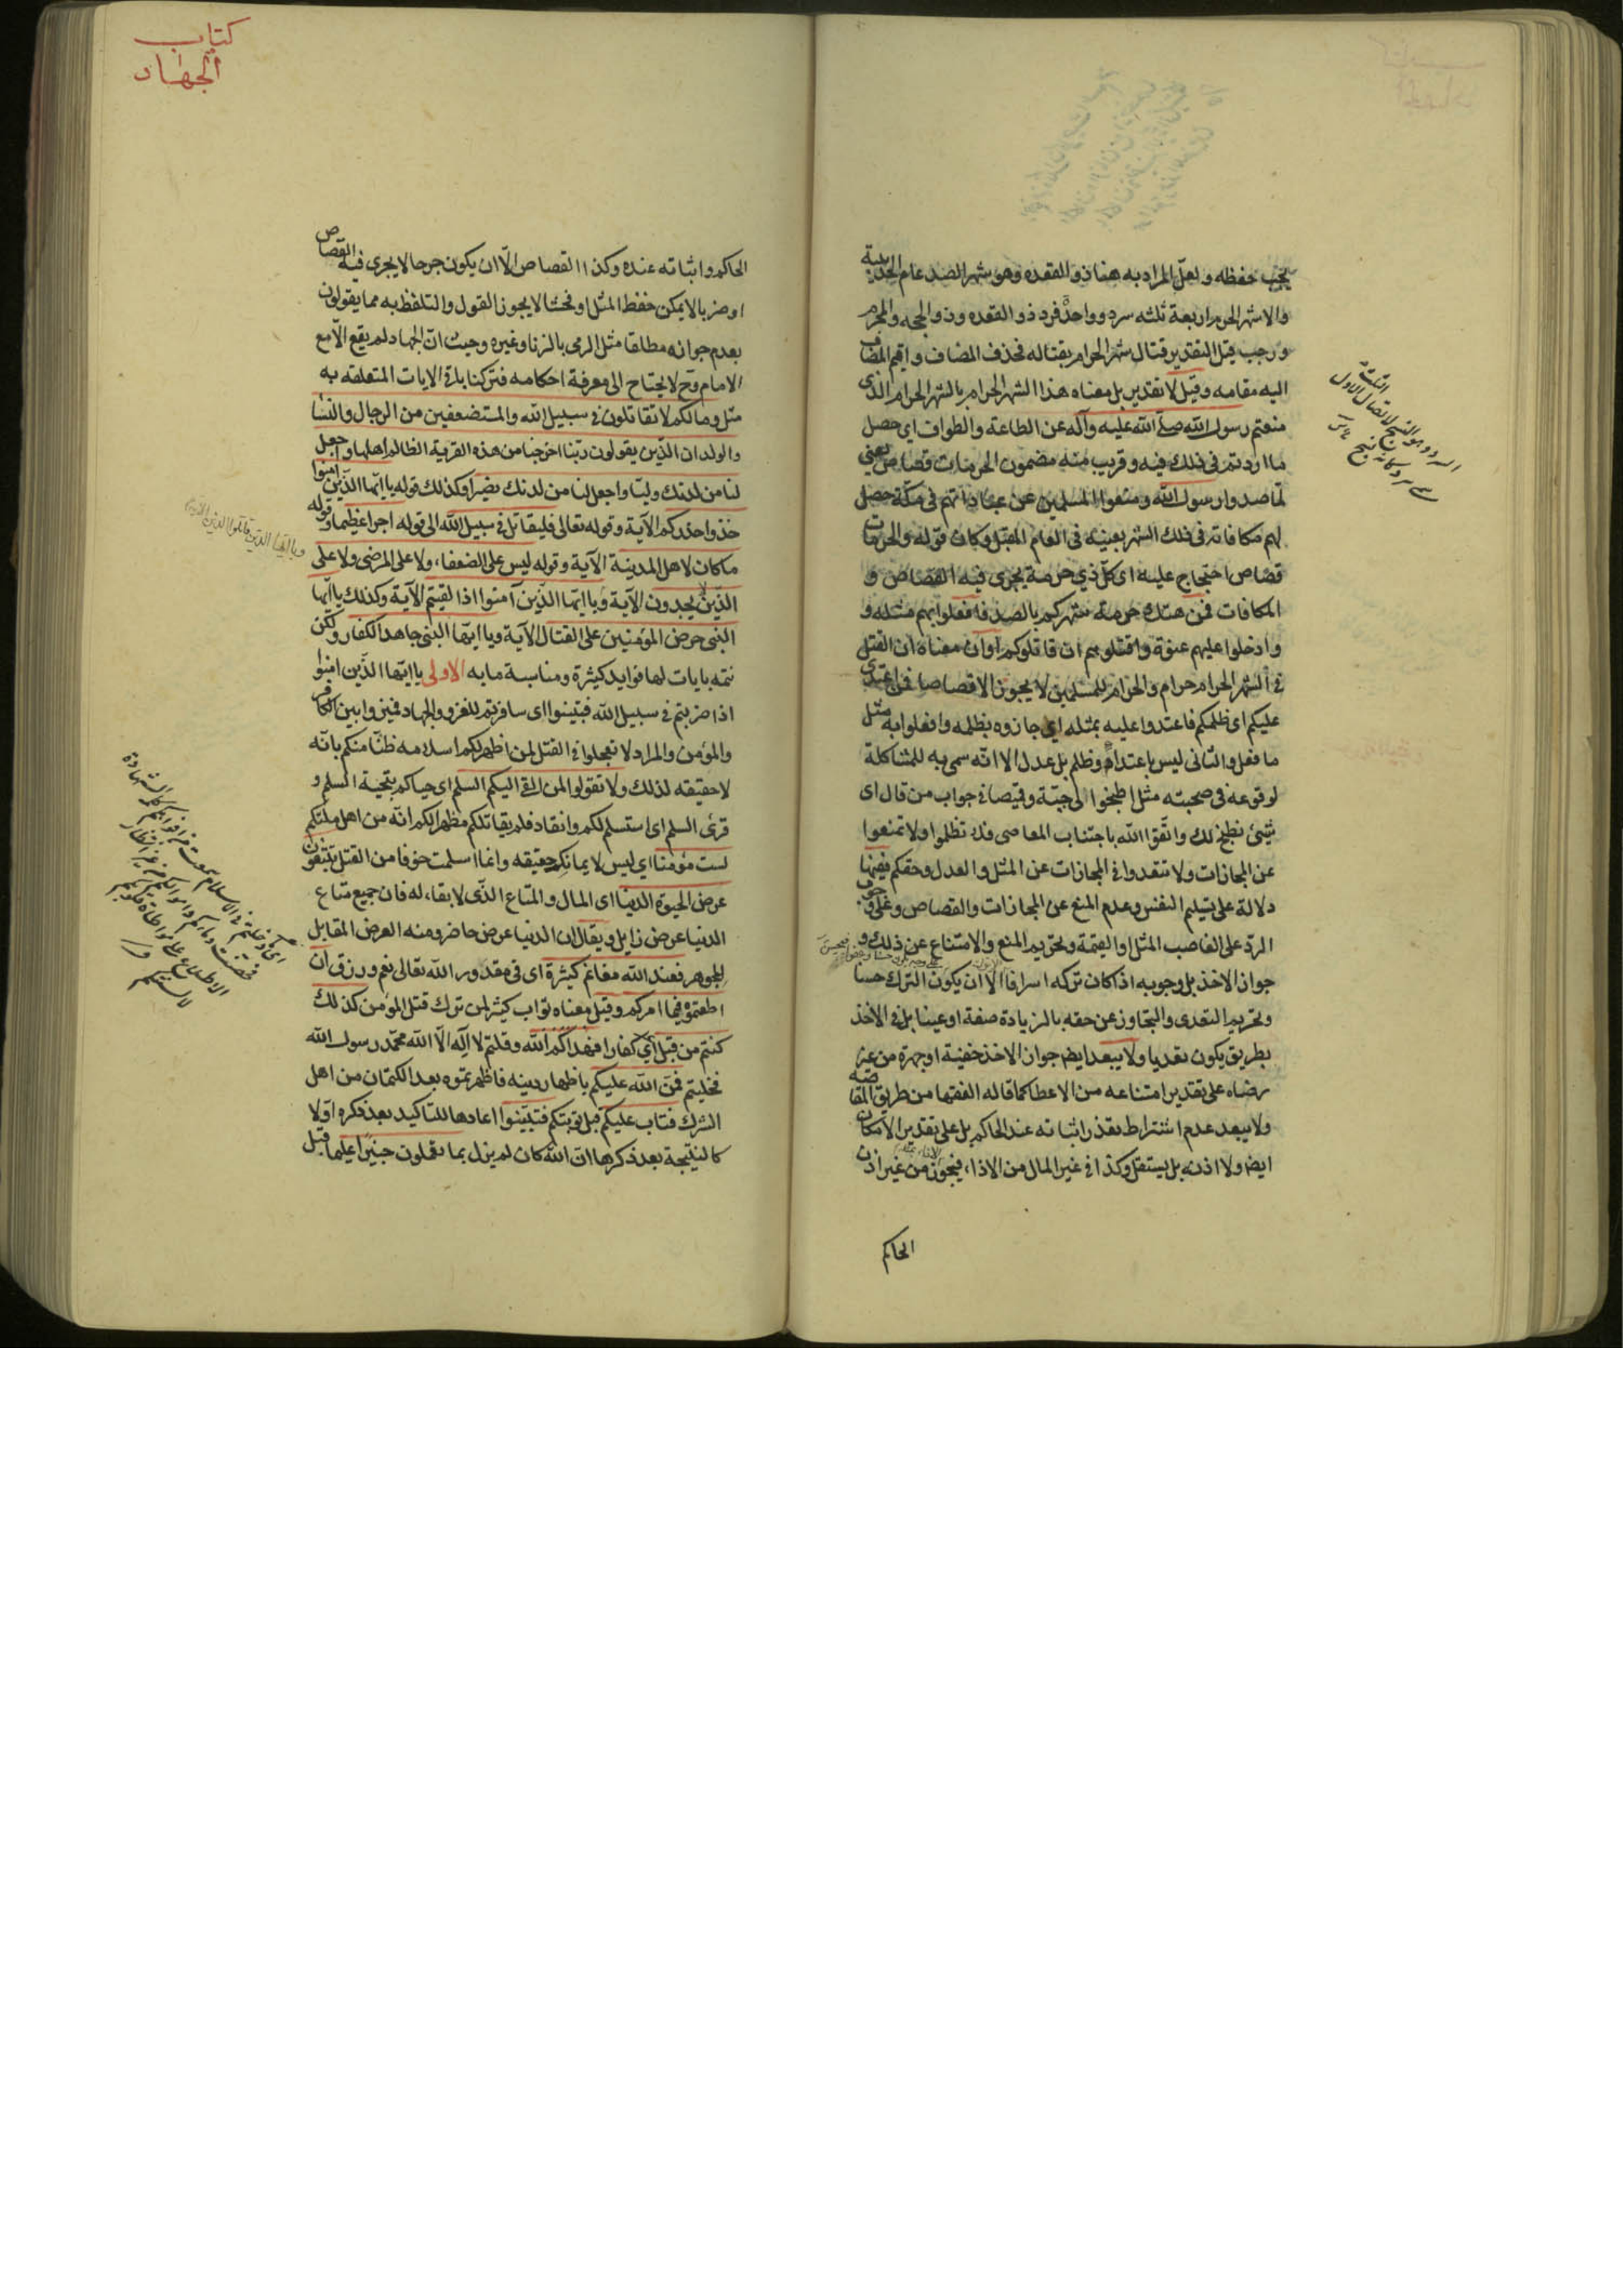 يجب حفظه ولعل المراد به هنا ذو القعده وهو شهر الصد عام الحديبية
والاشهر الحرم اربعة ثلثه سرد وواحد فرد ذو القعده وذو الحجه والمحرم
ورجب قيل التقدير قتال شهر الحرام بقتاله فحذف المضاف واقيم المضاف
اليه مقامه وقيل لا تقدير بل معناه هذا الشهر الحرام بالشهر الحرام الذى
منعتم رسول الله صلى الله عليه وآله عن الطاعة والطواف اى حصل
ما اردتم فى ذلك فيه وقريب منه مضمون الحرمات قصاص يعنى
لما صدوا رسول الله ومنعوا المسلمين عن عباداتهم فى مكة حصل
لهم مكافاته فى ذلك الشهر بعينه فى العام المقبل وكان قوله والحرمات
قصاص احتجاج عليه اى كل ذي حرمة يجرى فيه القصاص و
المكافات فمن هتك حرمة شهركم بالصد فافعلوا بهم مثله و
وادخلوا عليهم عنوة واقتلوهم ان قاتلوكم او ان معناه ان القتل
فى الشهر الحرام حرام والحرام للمسلمين لا يجوز الا قصاصا فمن اعتدى
عليكم اى ظلمكم فاعتدوا عليه بمثله اي جازوه بظلمه وافعلوا به مثل
ما فعل والثانى ليس باعتداء وظلم بل عدل الا انه سمى به للمشاكلة
لوقوعه فى صحبته مثل اطبخوا لى جبّة وقميصا فى جواب من قال اى
شيئ نطبخ لك واتقوا الله باجتناب المعاصى فلا تظلموا ولا تمنعوا
عن المجازات ولا تتعدوا فى المجازات عن المثل والعدل وحقكم ففيها
دلالة على تسليم النفس وعدم المنع عن المجازات والقصاص وعلى وجوب
الرد على الغاصب المثل او القيمة وتحريم المنع والامتناع عن ذلك و
جواز الاخذ بل وجوبه اذا كان تركه اسرافا الا ان يكون الترك حسنا
وتحريم التعدى والتجاوز عن حقه بالزيادة صفة او عينا بل فى الاخذ
بطريق يكون تعديا ولا يبعد ايضا جواز الاخذ خفية او جهرة من غير
رضاه على تقدير امتناعه من الاعطا كما قاله الفقها من طريق المقاصه
ولا يبعد عدم اشتراط تعذر اثباته عند الحاكم بل على تقدير الامكان
ايضا ولا اذنه بل يستقل وكذا فى غير المال من الاذاء فيجوز من غير اذن
الحاكم
كتاب
الجهاد
الحاكم واثباته عنده وكذا القصاص الا ان يكون جرحا لا يجرى فيه القصاص
او ضربا لا يمكن حفظ المثل او فحشا لا يجوز القول والتلفظ به مما يقولون
بعدم جوازه مطلقا مثل الرمى بالزنا وغيره وحيث ان الجهاد لم يقع الا مع
الامام وح لا يحتاج الى معرفة احكامه فتركنا باقى الايات المتعلقه به
مثل ومالكم لا تقاتلون فى سبيل الله والمستضعفين من الرجال والنسا
والولدان الذين يقولون ربنا اخرجنا من هذه القرية الظالم اهلها واجعل
لنا من لدنك وليا واجعل لنا من لدنك نصيرا وكذلك قوله يا ايها الذين امنوا
خذوا حذركم الآية وقوله تعالى فليقاتل فى سبيل الله الى قوله اجرا عظيما وقوله
ما كان لاهل المدينة الآية وقوله ليس على الضعفاء ولا على المرضى ولا على
الذين لا يجدون الآية ويا ايها الذين آمنوا اذا لقيتم الآية وكذلك يا ايها
النبى حرض المؤمنين على القتال الآية ويا ايها النبى جاهد الكفار ولكن
نتمه بايات لها فوايد كثيرة ومناسبة ما به الاولى يا ايها الذين امنوا
اذا ضربتم فى سبيل الله فتبينوا اى سافرتم للغزو والجهاد فميزوا بين الكافر
والمؤمن والمراد لا تعجلوا فى القتل لمن اظهر لكم اسلامه ظنا منكم بانه
لا حقيقه لذلك ولا تقولوا لمن القى اليكم السلم اى حياكم بتحية السلم و
قرئ السلم اى استسلم لكم وانقاد فلم يقاتلكم مظهرا لكم انه من اهل ملتكم
لست مؤمنا اي ليس لايمانكم حقيقه وانما اسلمت خوفا من القتل تبتغون
عرض الحيوة الدنيا اى المال والمتاع الذى لا بقاء له فان جميع متاع
الدنيا عرض زايل ويقال ان الدنيا عرض حاضر ومنه العرض المقابل
للجوهر فعند الله مغانم كثيرة اى فى مقدور الله تعالى نعم ورزق ان
اطعتموه فيما امركم وقيل معناه ثواب كثير لمن ترك قتل المؤمن كذلك
كنتم من قبل اي كفارا فهداكم الله وقلتم لا اله الا الله محمد رسول الله
فخليتم فمن الله عليكم باظهار دينه فاظهرتموه بعد الكتمان من اهل
الشرك فتاب عليكم قبل توبتكم فتبينوا اعادها للتاكيد بعد ذكره اولا
كالنتيجة بعد ذكرها ان الله كان لم يزل بما تعملون خبيرا عليما قبل